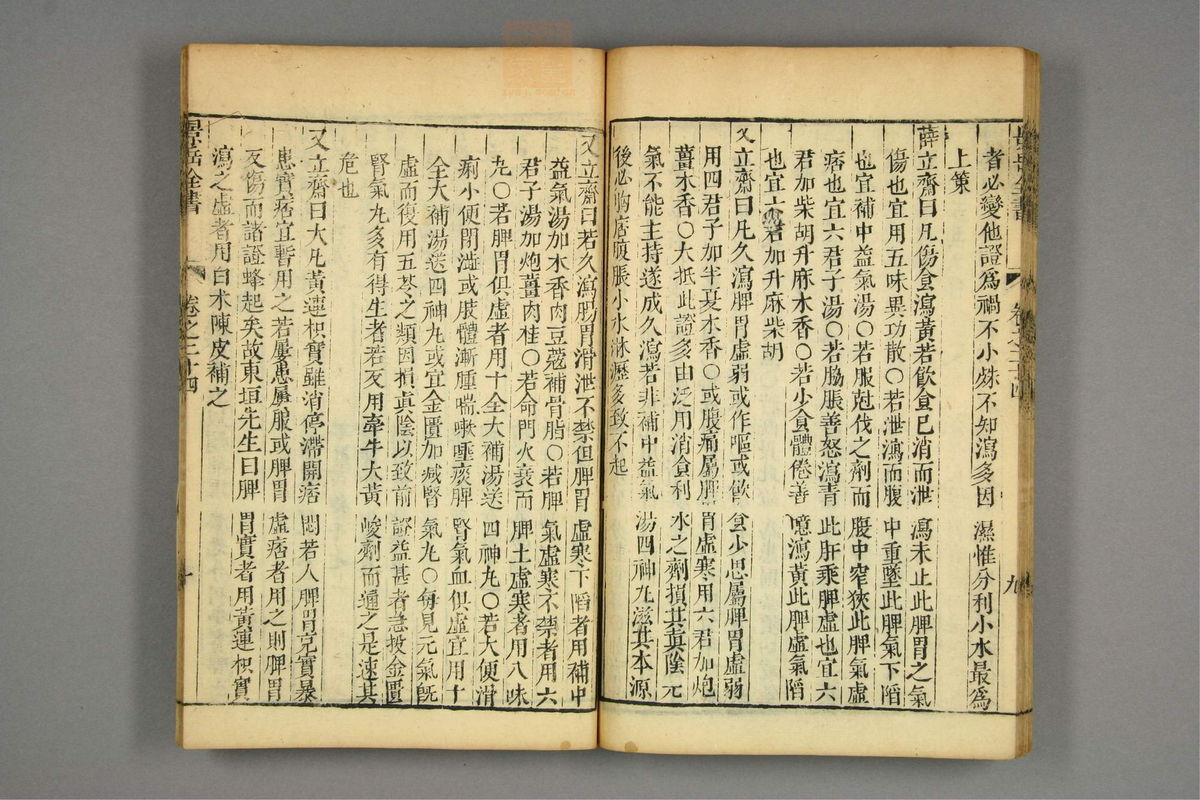 景岳全書 卷之二十四 九
者必變他證爲禍不小殊不知瀉多因濕惟分利小水最爲
上策
薛立齋曰凡傷食瀉黃若飲食已消而泄瀉未止此脾胃之氣
傷也宜用五味異功散〇若泄瀉而腹中重墜此脾氣下陷
也宜補中益氣湯〇若服尅伐之劑而腹中窄狹此脾氣虛
痞也宜六君子湯〇若脇脹善怒瀉青此肝乘脾虛也宜六
君加柴胡升麻木香〇若少食體倦善噫瀉黃此脾虛氣陷
也宜六君加升麻柴胡
又立齋曰凡久瀉脾胃虛弱或作嘔或飲食少思屬脾胃虛弱
用四君子加半夏木香〇或腹痛屬脾胃虛寒用六君加炮
薑木香〇大抵此證多由泛用消食利水之劑損其真陰元
氣不能主持遂成久瀉若非補中益氣湯四神丸滋其本源
後必胸痞腹脹小水淋瀝多致不起
又立齋曰若久瀉腸胃滑泄不禁但脾胃虛寒下陷者用補中
益氣湯加木香肉豆蔻補骨脂〇若脾氣虛寒不禁者用六
君子湯加炮薑肉桂〇若命門火衰而脾土虛寒者用八味
丸〇若脾胃俱虛者用十全大補湯送四神丸〇若大便滑
痢小便閉澁或肢體漸腫喘嗽唾痰脾腎氣血俱虛宜用十
全大補湯送四神丸或宜金匱加減腎氣丸〇每見元氣旣
虛而復用五苓之類因損真陰以致前證益甚者急投金匱
腎氣丸多有得生者若反用牽牛大黃峻劑而通之是速其
危也
又立齋曰大凡黃連枳實雖消停滯開痞悶若人脾胃充實暴
患實痞宜暫用之若屢患屢服或脾胃虛痞者用之則脾胃
反傷而諸證蜂起矣故東垣先生曰脾胃實者用黃連枳實
瀉之虛者用白朮陳皮補之
景岳全書 卷之二十四 十